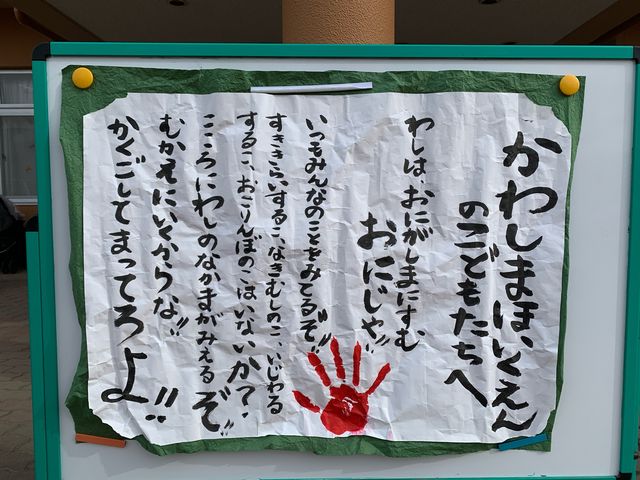 かわしまほいくえん
のこどもたちへ
わしは、おにがしまにすむ
おにじゃ!!
いつもみんなのことをみてるぞ!!
すききらいするこ、なきむしのこ、いじわる
するこ、おこりんぼのこはいないか?
こころにわしのなかまがみえるぞ!!
むかえにいくからな!!
かくごしてまってろよ!!